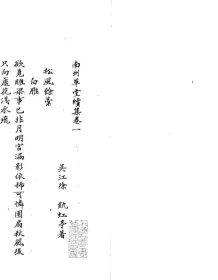 南州草堂續集卷一
吳江徐釚虹亭著
松風餘韻
白雁
欲覓雕梁事已非月明宮漏影依稀可憐團扇秋風後
只向蘆花淺水飛